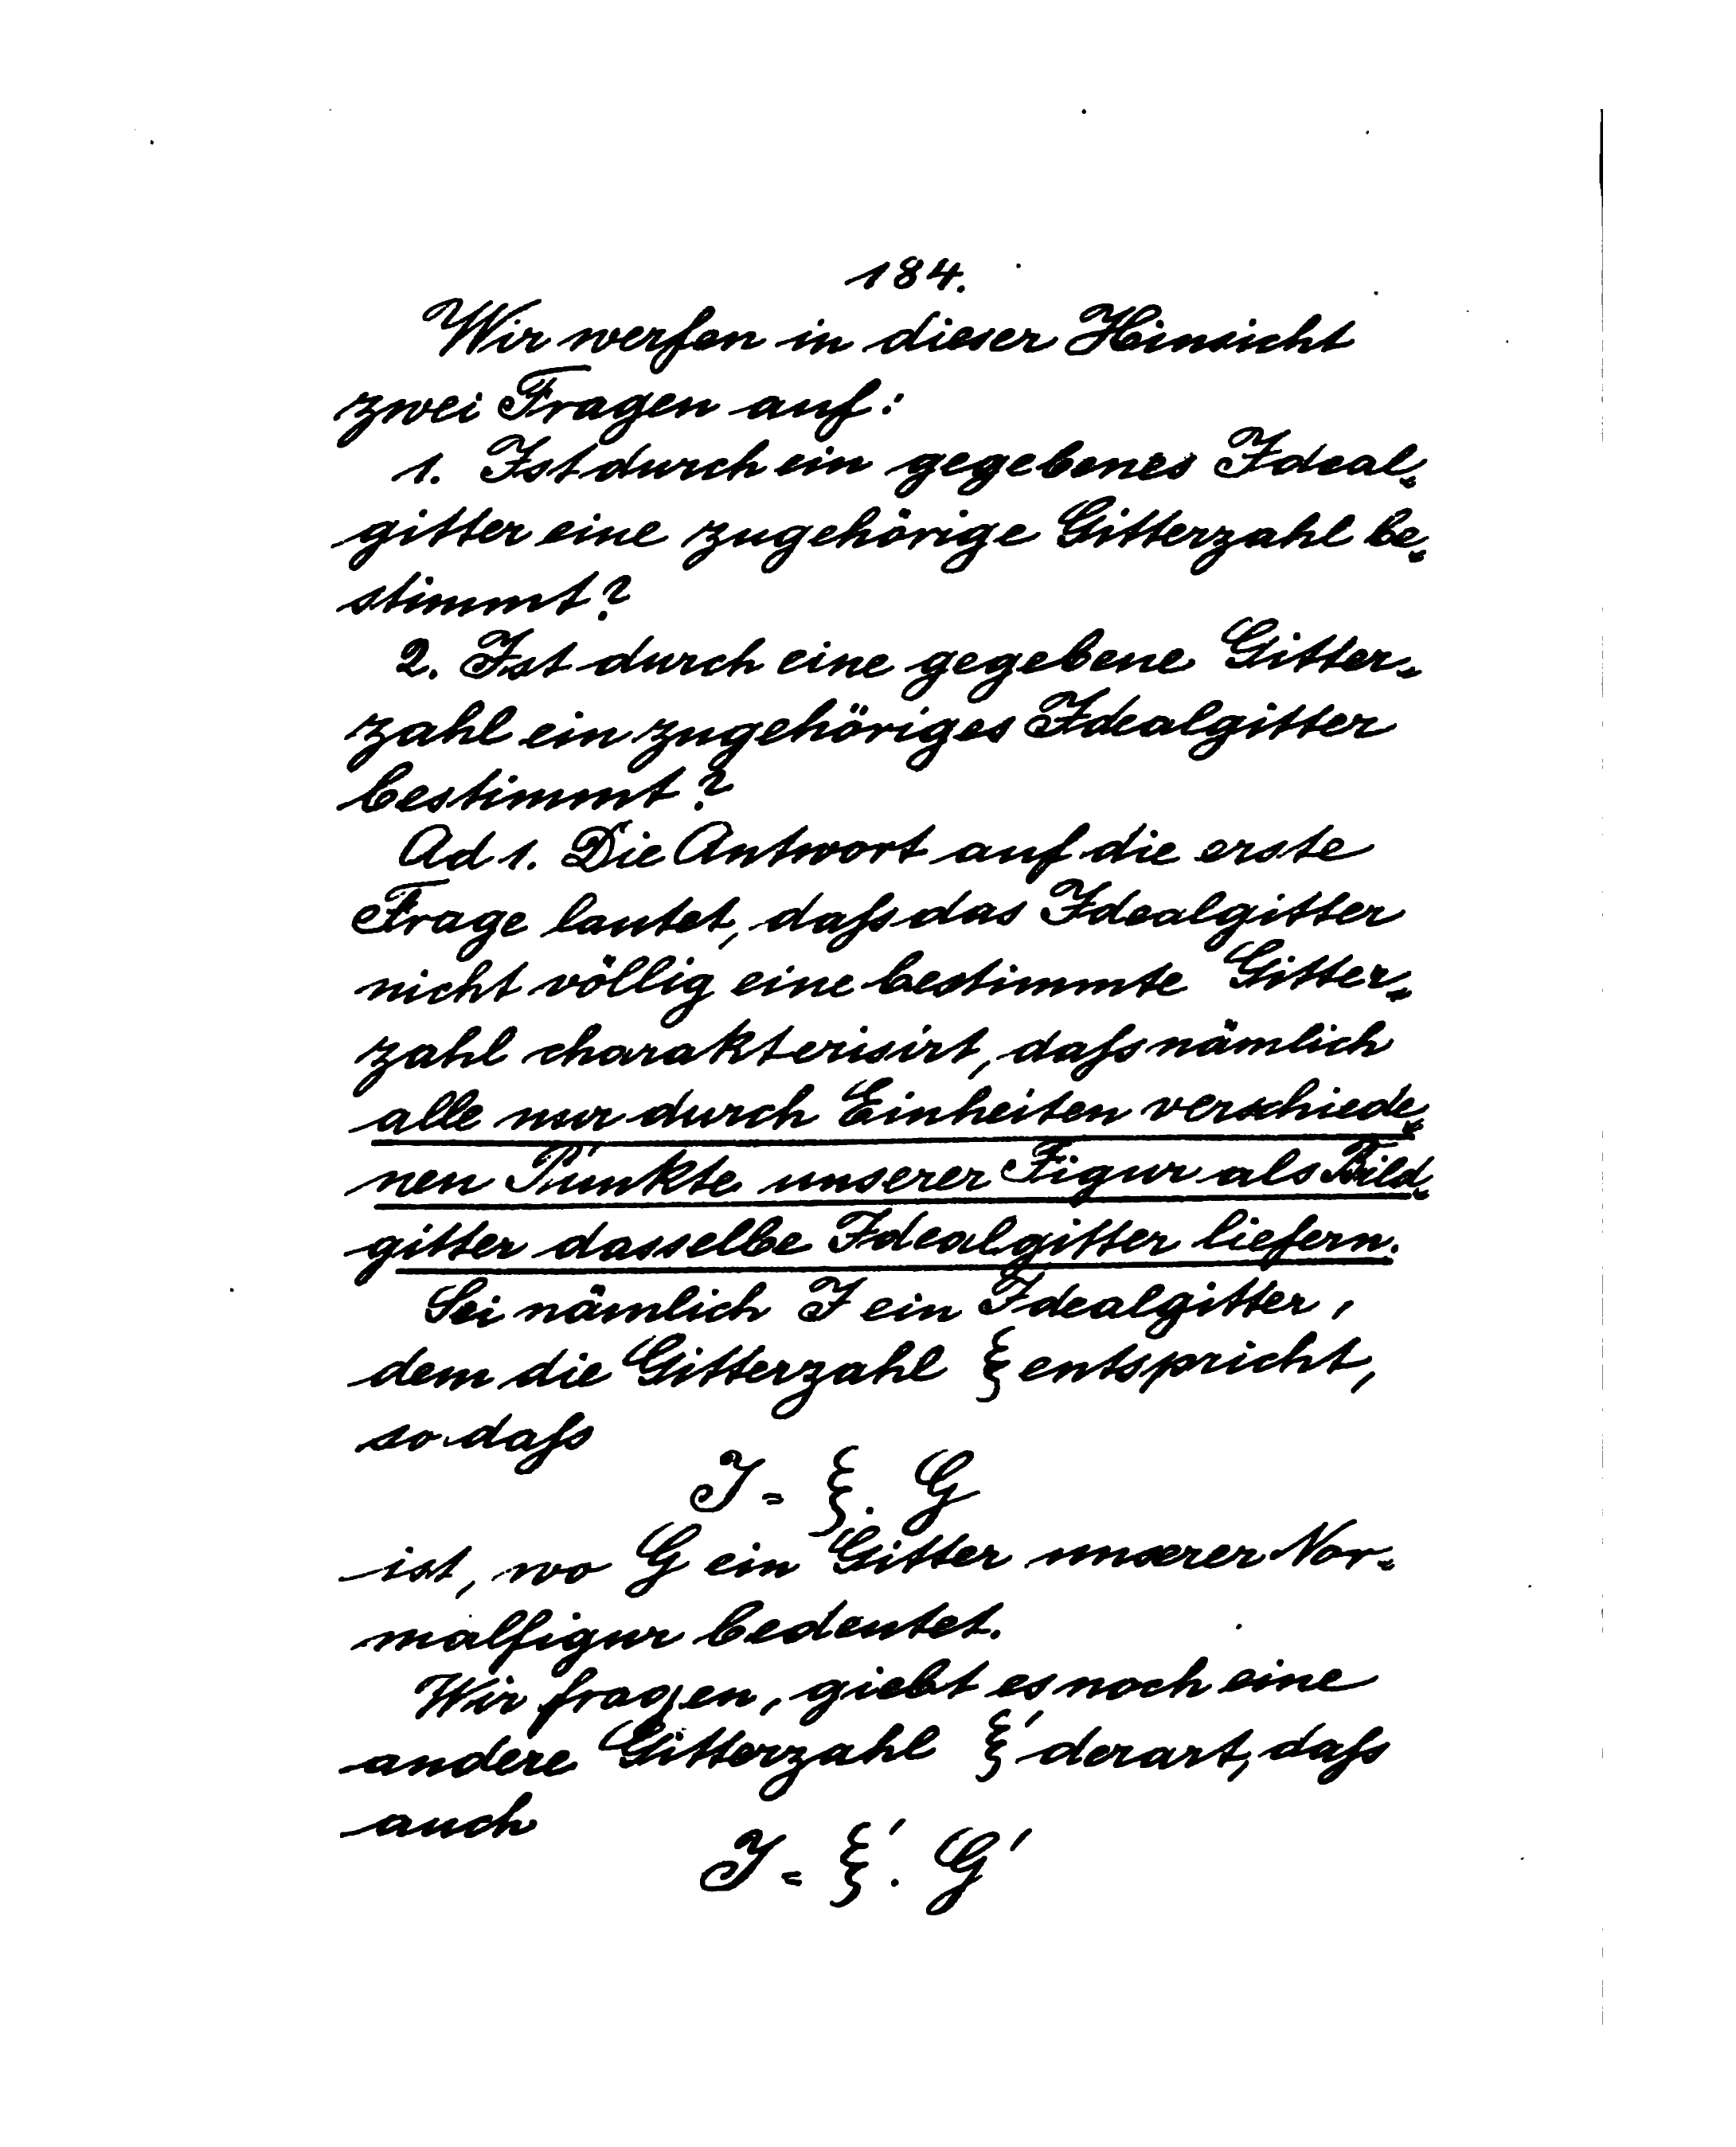 184.
Wir werfen in dieser Hinsicht
zwei Fragen auf:
1. Ist durch ein gegebenes Ideal-
gitter eine zugehörige Gitterzahl be-
stimmt?
2. Ist durch eine gegebene Gitter-
zahl ein zugehöriges Idealgitter
bestimmt?
Ad 1. Die Antwort auf die erste
Frage lautet, daſs das Idealgitter
nicht völlig eine bestimmte Gitter-
zahl charakterisirt, daſs nämlich
alle nur durch Einheiten verschiede-
nen Punkte unserer Figur als Bild-
gitter dasselbe Idealgitter liefern.
Sei nämlich J ein Idealgitter,
dem die Gitterzahl ξ entspricht,
so daſs
J = ξ . G
ist, wo G ein Gitter unserer Nor-
malfigur bedeutet.
Wir fragen, giebt es noch eine
andere Gitterzahl ξ' derart, daſs
auch
J = ξ' . G'